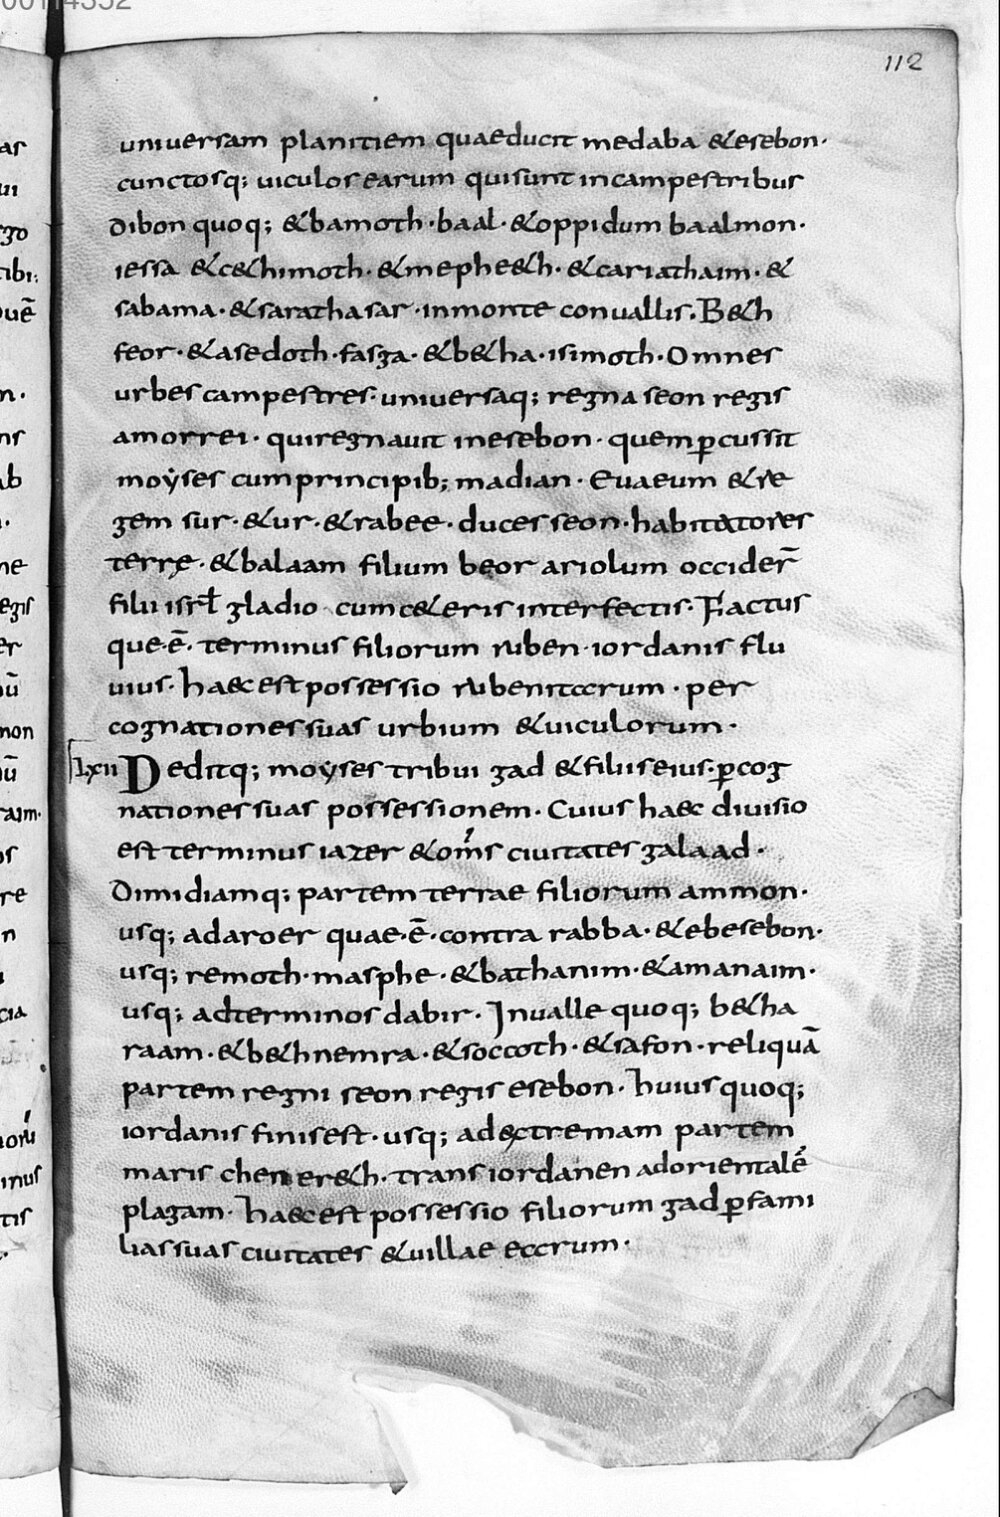 112
uniuersam planitiem quaeducit medaba &esebon·
cunctosq; uiculos earum quisunt incampestribus
dibon quoq; &bamoth·baal·&oppidum baalmon·
iessa &c&himoth·&mephe&h·&cariathaim·&
sabama·&sarathasar·inmonte conuallis. B&h
feor·&asedoth·fasga·&b&ha·isimoth·Omnes
urbes campestres·uniuersaq; regna seon regis
amorrei·quiregnauit inesebon·quem ꝑcussit
moẏses cumprincipib; madian·Euaeum &re
gem sur·&ur·&rabee·duces seon·habitatores
terrę·&balaam filium beor ariolum occider̄
filii isrł gladio cumc&eris interfectis·Factus
que·ē·terminus filiorum ruben·iordanis flu
uius·haec est possessio rubenitarum·per
cognationes suas urbium &uiculorum·
Lxii Deditq; moẏses tribui gad &filiis eius·ꝑcog
nationes suas possessionem·Cuius haec diuisio
est terminus iazer &om̄s ciuitates galaad·
dimidiamq; partem terrae filiorum ammon·
usq; adaroer quae·ē·contra rabba·&ebesebon·
usq; remoth·masphe·&bathanim·&amanaim·
usq; adterminos dabir·Inualle quoq; b&ha
raam·&b&hnemra·&soccoth·&safon·reliquā
partem regni seon regis esebon·huius quoq;
iordanis finis est·usq; adextremam partem
maris chenere&h·trans iordanen adorientalē
plagam·haec est possessio filiorum gad ꝑfami
lias suas ciuitates &uillae earum·